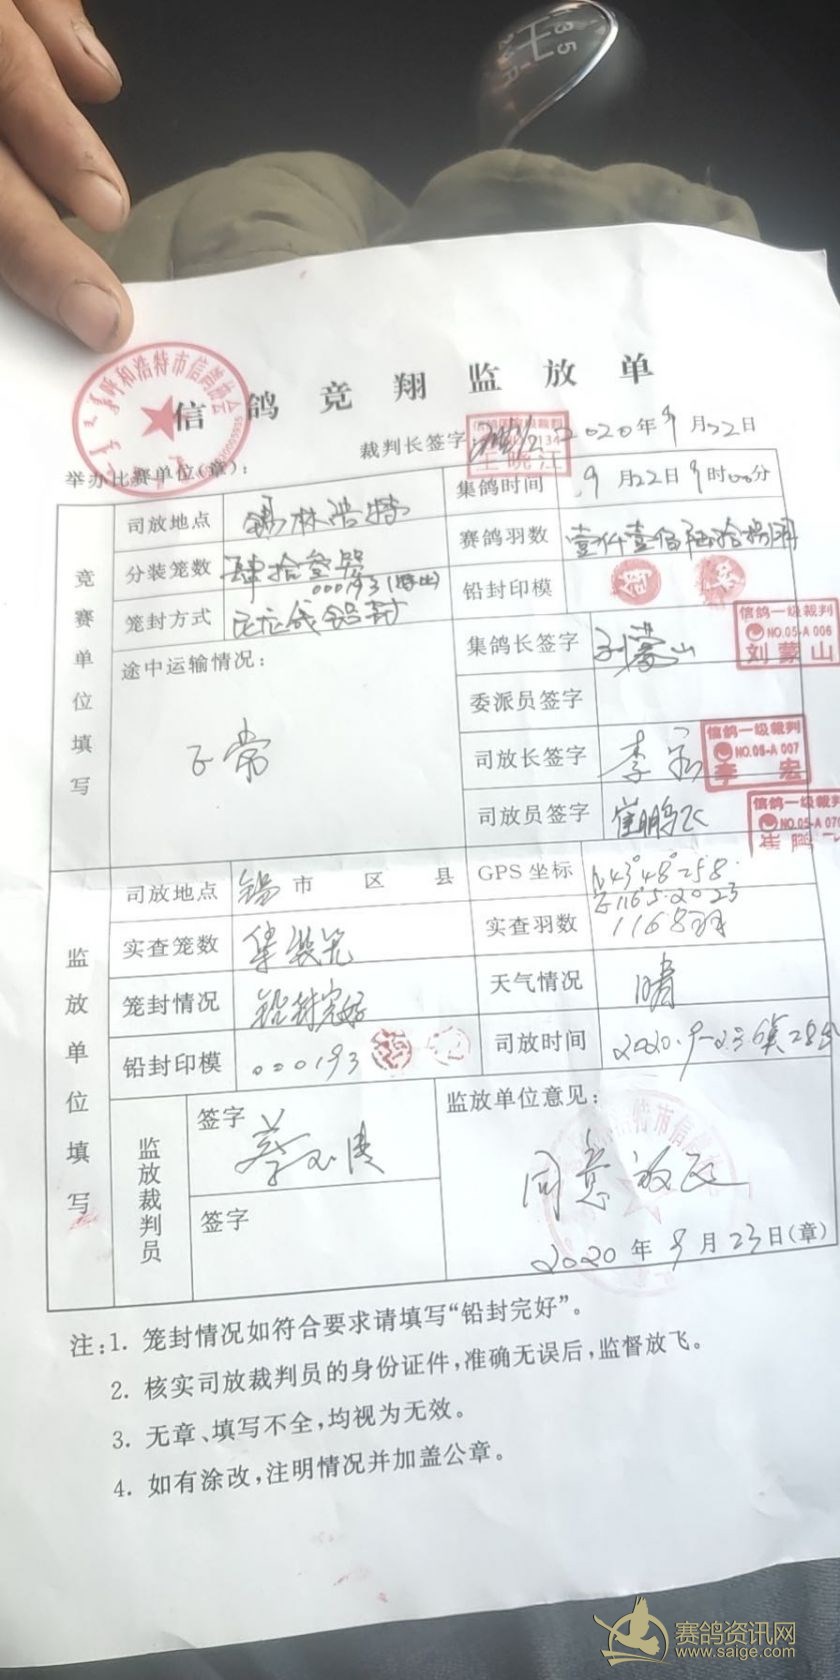 信鸽竞翔监放单
呼和浩特市信鸽协会
举办比赛单位(章):
裁判长签字 王晓江 2020年9月22日
竞赛单位填写
司放地点 锡林浩特
集鸽时间 9月22日9时00分
分装笼数 肆拾叁笼
赛鸽羽数 壹仟壹佰陆拾捌羽
000193(特比)
笼封方式 铅封
铅封印模
途中运输情况:
正常
集鸽长签字 刘蒙山
信鸽一级裁判
NO.05-A 006
刘蒙山
委派员签字
司放长签字 李宏
信鸽一级裁判
NO.05-A 007
李宏
司放员签字 崔鹏飞
信鸽一级裁判
NO.05-A 070
监放单位填写
司放地点 锡市 区 县
GPS坐标 N43°48°258
E116.5.2023
实查笼数 集装笼
实查羽数 1168羽
笼封情况 铅封完好
天气情况 晴
铅封印模 000193
司放时间 2020.9-23 6时28分
监放裁判员
签字
签字
监放单位意见:
同意放飞
2020年9月23日(章)
注:1. 笼封情况如符合要求请填写“铅封完好”。
2. 核实司放裁判员的身份证件,准确无误后,监督放飞。
3. 无章、填写不全,均视为无效。
4. 如有涂改,注明情况并加盖公章。
赛鸽资讯网
www.saige.com